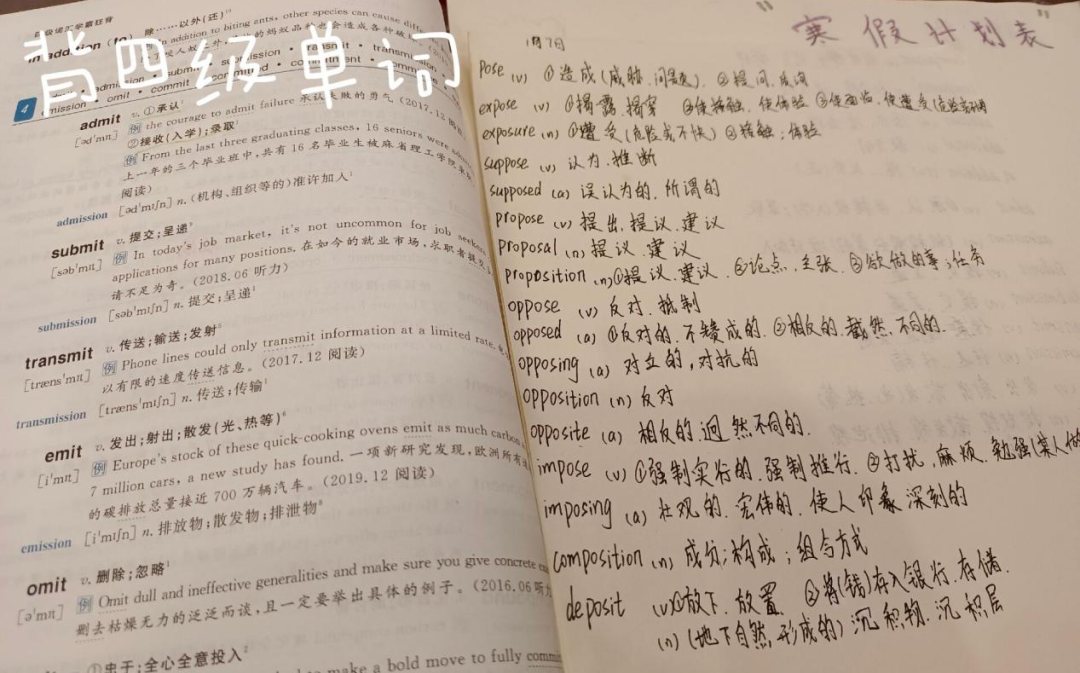 四级词汇学霸狂背
in addition (to) 除……以外(还)
In addition to biting ants, other species can cause
背四级单词
4
admission · submit · submission · transmit · transmission
emission · omit · commit · committed · commitment
admit v. ①承认
[əd'mɪt] 例 the courage to admit failure 承认失败的勇气 (2017.12
②接收(入学);录取
例 From the last three graduating classes, 16 seniors were
上一年的三个毕业班中,共有 16 名毕业生被麻省理工学院录取
阅读)
admission [əd'mɪʃn] n. (机构、组织等的)准许加入
submit v. 提交;呈递
[səb'mɪt] 例 In today's job market, it's not uncommon for job seekers
applications for many positions. 在如今的就业市场,求职者提交
请不足为奇。(2018.06 听力)
submission [səb'mɪʃn] n. 提交;呈递
transmit v. 传送;输送;发射
[træns'mɪt] 例 Phone lines could only transmit information at a limited rate.
以有限的速度传送信息。(2017.12 阅读)
transmission [træns'mɪʃn] n. 传送;传输
emit v. 发出;射出;散发(光、热等)
[i'mɪt] 例 Europe's stock of these quick-cooking ovens emit as much carbon
7 million cars, a new study has found. 一项新研究发现,欧洲所有
的碳排放总量接近 700 万辆汽车。(2019.12 阅读)
emission [i'mɪʃn] n. 排放物;散发物;排泄物
omit v. 删除;忽略
[ə'mɪt] 例 Omit dull and ineffective generalities and make sure you give concrete
删去枯燥无力的泛泛而谈,且一定要举出具体的例子。(2016.06 听力
①忠于;全心全意投入
make a bold move to fully
"寒假计划表"
1月7日
pose (v) ①造成(威胁.问题) ②提问.质询
expose (v) ①揭露.揭穿 ②使接触.使体验 ③使面临.使遭受(危险或不快
exposure (n) ①遭受(危险或不快) ②接触;体验
suppose (v) 认为.推断
supposed (a) 误认为的.所谓的
propose (v) 提出.提议.建议
proposal (n) 提议.建议
proposition (n) ①提议.建议 ②论点.主张 ③欲做的事;任务
oppose (v) 反对.抵制
opposed (a) ①反对的.不赞成的. ②相反的.截然.不同的.
opposing (a) 对立的,对抗的
opposition (n) 反对
opposite (a) 相反的.迥然不同的.
impose (v) ①强制实行的.强制推行. ②打扰.麻烦.勉强(某人做
imposing (a) 壮观的.宏伟的.使人印象深刻的
composition (n) 成分;构成;组合方式
deposit (v) ①放下.放置 ②将(钱)存入银行.存储.
(n) (地下自然.形成的) 沉积物.沉积层